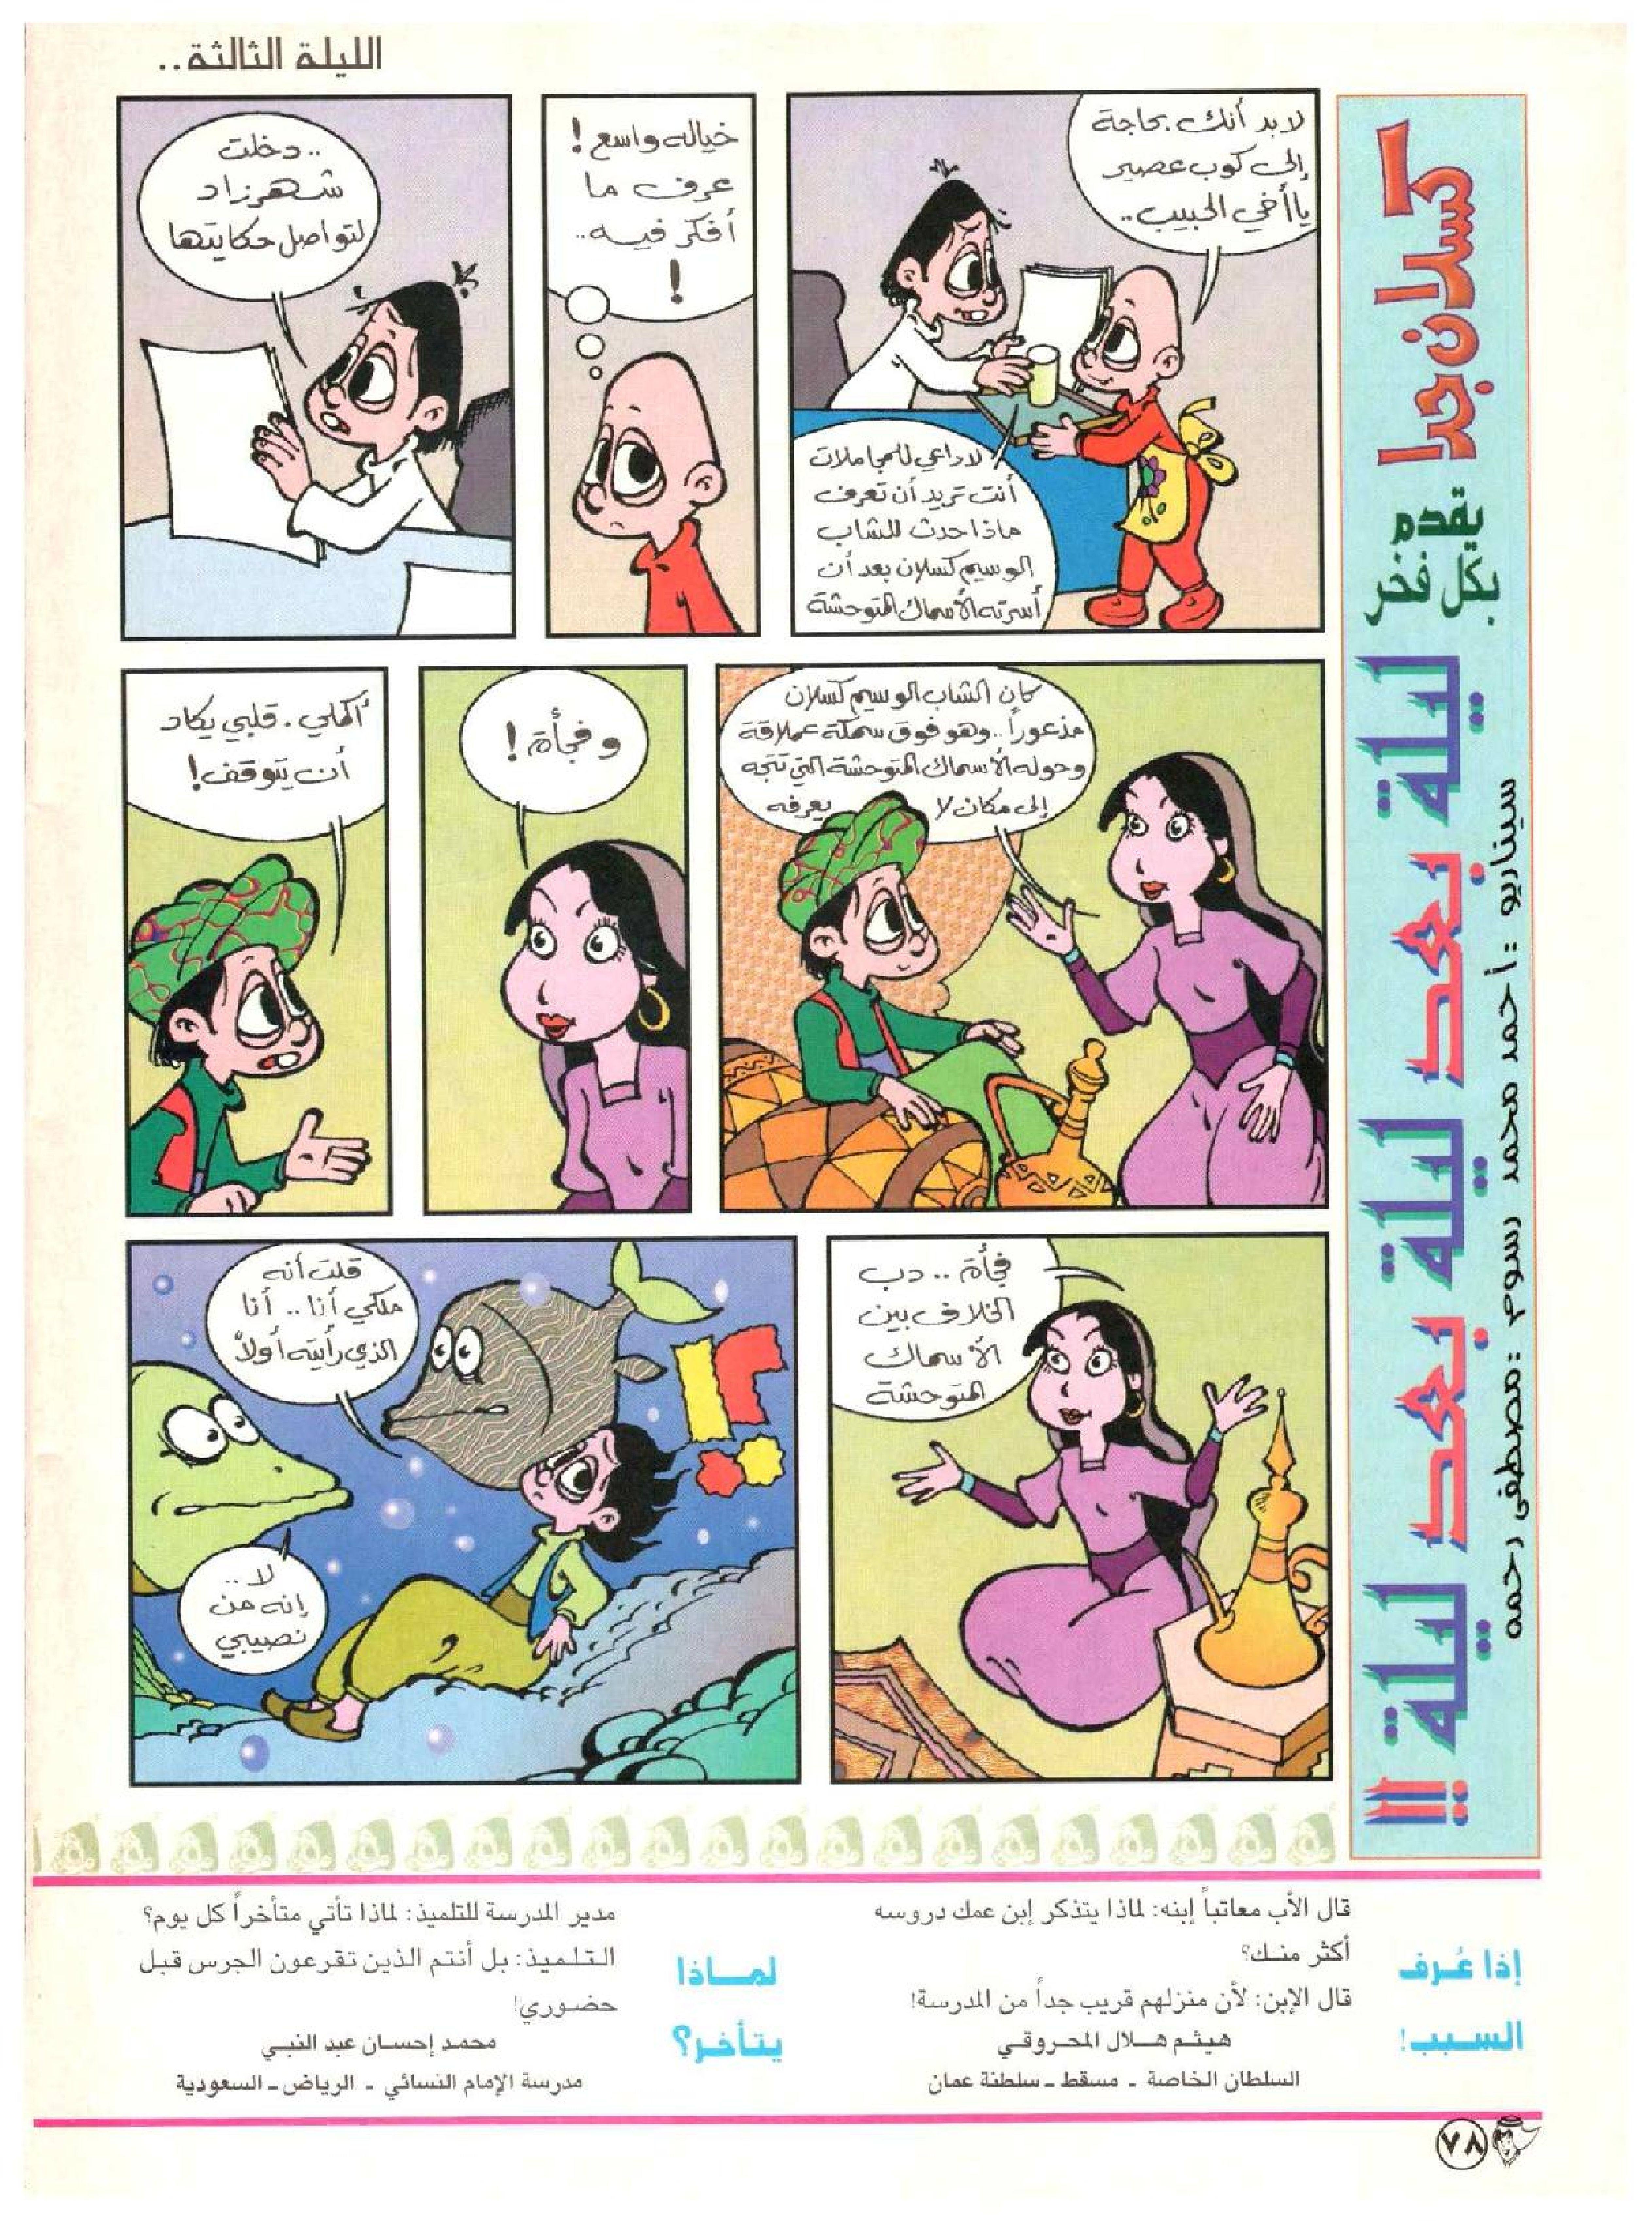 الليلة الثالثة..
كسلان جدا
يقدم
بكل فخر
ليلة بعد ليلة بعد ليلة !!
سيناريو : أحمد محمد رسوم :مصطفى رحمه
لا بد أنك بحاجة
إلى كوب عصير
يا أخي الحبيب..
لا داعي للمجاملات
أنت تريد أن تعرف
ماذا حدث للشاب
الوسيم كسلان بعد أن
أسرته الأسماك المتوحشة
خياله واسع!
عرف ما
أفكر فيه..
!
..دخلت
شهرزاد
لتواصل حكايتها
كان الشاب الوسيم كسلان
مذعوراً..وهو فوق سمكة عملاقة
وحوله الأسماك المتوحشة التي تتجه
إلى مكان لا يعرفه
وفجأة!
أكملي. قلبي يكاد
أن يتوقف!
فجأة.. دب
الخلاف بين
الأسماك
المتوحشة
قلت أنه
ملكي أنا.. أنا
الذي رأيته أولاً
لا..
إنه من
نصيبي
إذا عُـرف
السـبـب!
قال الأب معاتباً إبنه: لماذا يتذكر إبن عمك دروسه
أكثر منـك؟
قال الإبن: لأن منزلهم قريب جداً من المدرسة!
هيثـم هـلال المحـروقـي
السلطان الخاصة - مسقط - سلطنة عمان
لمــاذا
يتأخـر؟
مدير المدرسة للتلميذ: لماذا تأتي متأخراً كل يوم؟
التـلـمـيذ: بل أنتم الذين تقرعون الجرس قبل
حضوري!
محمد إحسان عبد النبي
مدرسة الإمام النسائي - الرياض - السعودية
٧٨